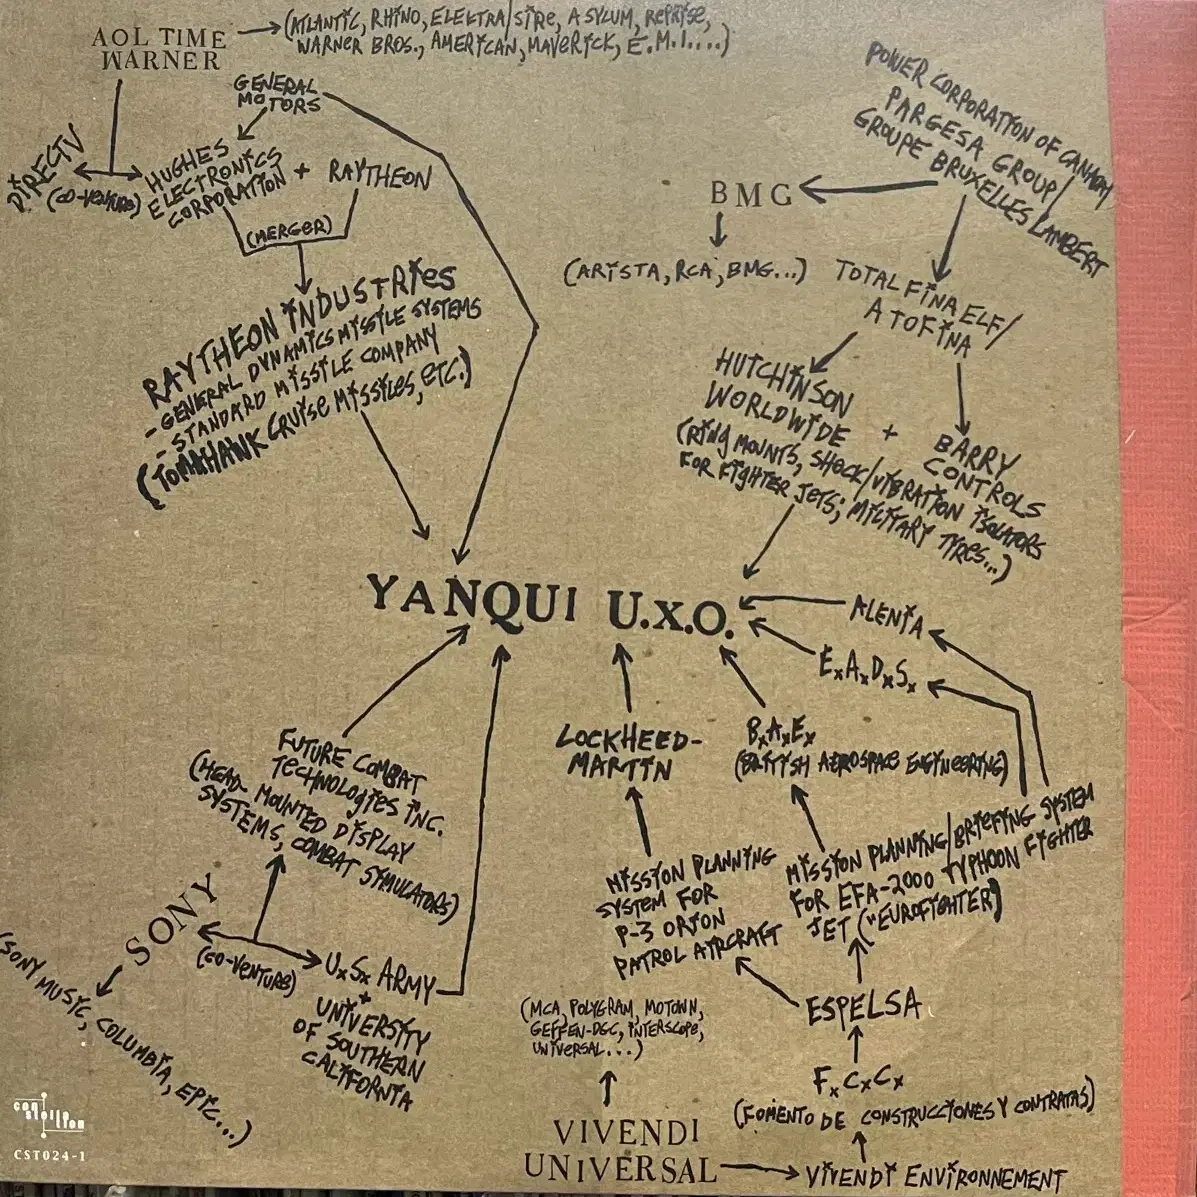 AOL TIME
WARNER
(ATLANTIC, RHINO, ELEKTRA/SIRE, ASYLUM, REPRISE,
WARNER BROS., AMERICAN, MAVERICK, E.M.I....)
GENERAL
MOTORS
DIRECTV
(CO-VENTURE)
HUGHES
ELECTRONICS
CORPORATION
+ RAYTHEON
(MERGER)
RAYTHEON INDUSTRIES
- GENERAL DYNAMICS MISSILE SYSTEMS
- STANDARD MISSILE COMPANY
(TOMAHAWK CRUISE MISSILES, ETC.)
POWER CORPORATION OF CANADA
PARGESA GROUP/
GROUPE BRUXELLES LAMBERT
BMG
(ARISTA, RCA, BMG...)
TOTAL FINA ELF/
ATOFINA
HUTCHINSON
WORLDWIDE
+ BARRY
CONTROLS
(RING MOUNTS, SHOCK/VIBRATION ISOLATORS
FOR FIGHTER JETS; MILITARY TYRES...)
YANQUI U.X.O.
ALENIA
E.A.D.S.
LOCKHEED-
MARTIN
B.A.E.
(BRITISH AEROSPACE ENGINEERING)
FUTURE COMBAT
TECHNOLOGIES INC.
(HEAD-MOUNTED DISPLAY
SYSTEMS, COMBAT SIMULATORS)
SONY
(CO-VENTURE)
(SONY MUSIC, COLUMBIA, EPIC...)
U.S. ARMY
+
UNIVERSITY
OF SOUTHERN
CALIFORNIA
MISSION PLANNING
SYSTEM FOR
P-3 ORION
PATROL AIRCRAFT
MISSION PLANNING/BRIEFING SYSTEM
FOR EFA-2000 TYPHOON FIGHTER
JET ("EUROFIGHTER)
ESPELSA
(MCA, POLYGRAM, MOTOWN,
GEFFEN-DGC, INTERSCOPE,
UNIVERSAL...)
F.C.C.
(FOMENTO DE CONSTRUCCIONES Y CONTRATAS)
VIVENDI
UNIVERSAL
VIVENDI ENVIRONNEMENT
constellation
CST024-1